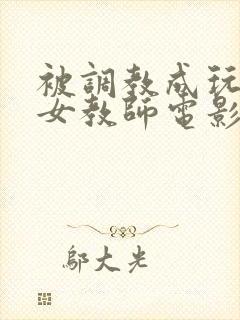 被調教成玩
女教師電影
鄔大光